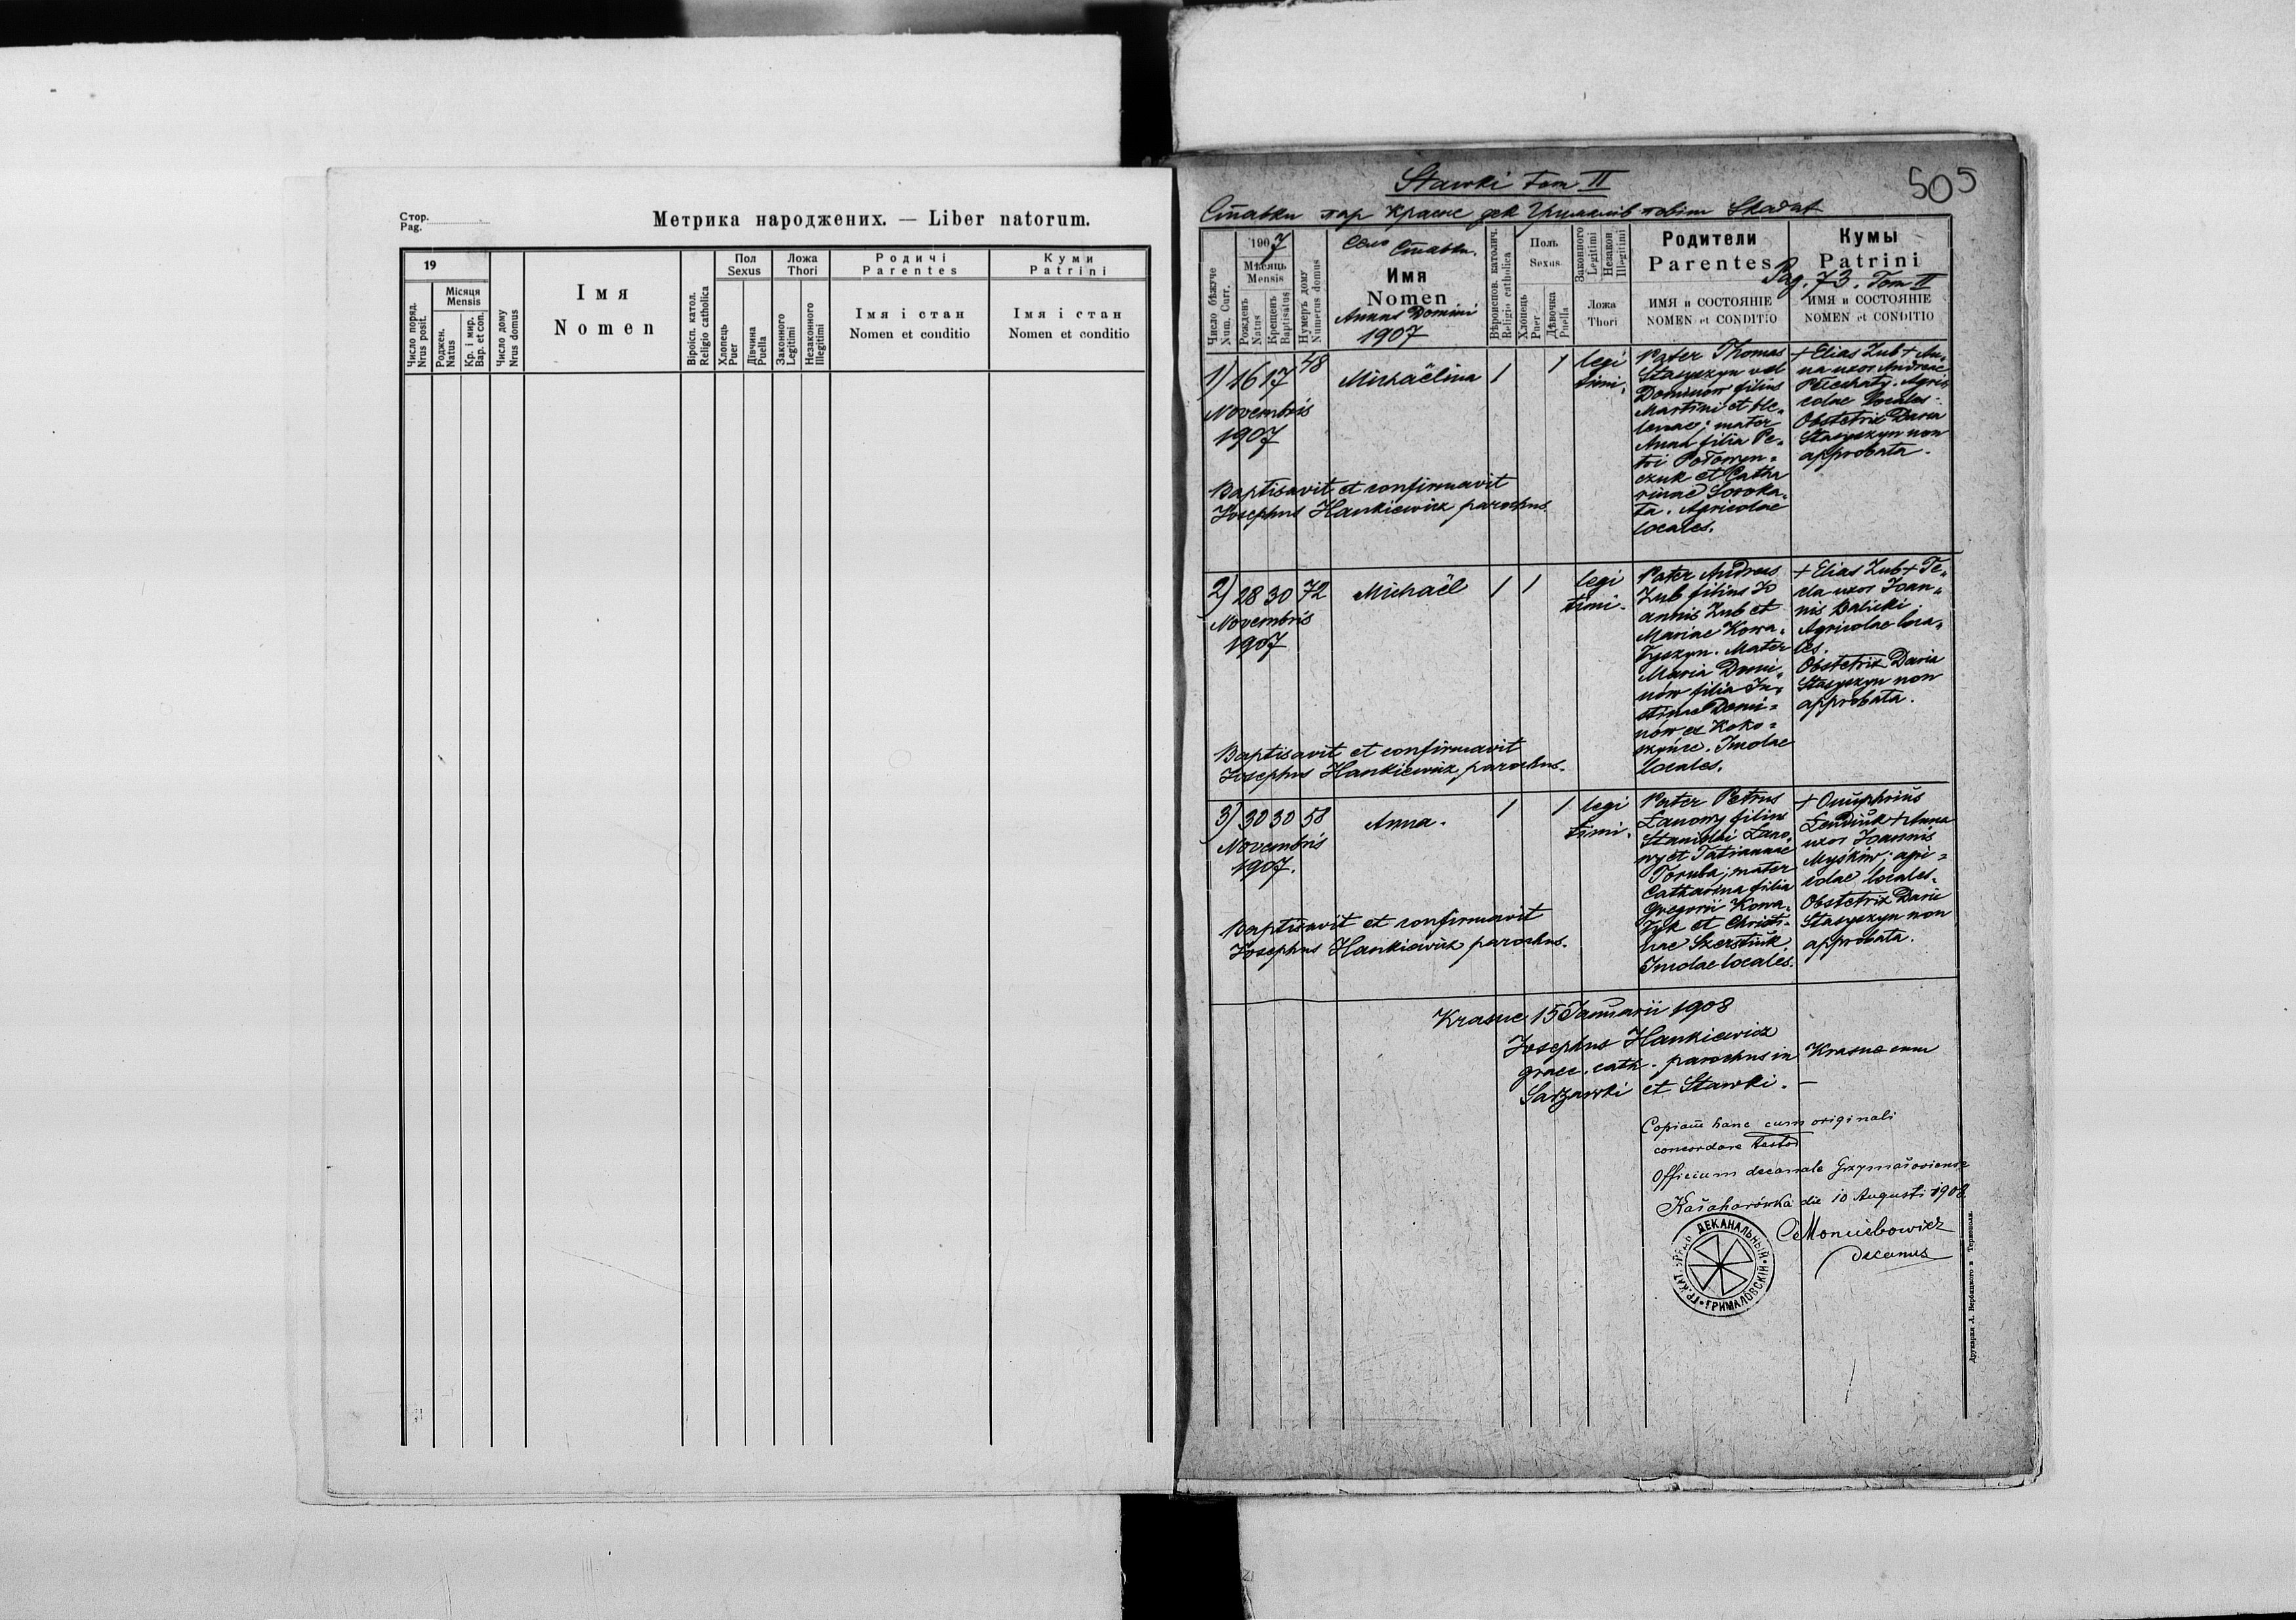 Стор.
Pag.
Метрика народжених. — Liber natorum.
19
Місяця
Mensis
Число поряд.
Nrus posit.
Роджен.
Natus
Кр. і мир.
Bap. et con.
Число дому
Nrus domus
Імя
Nomen
Віроісп. катол.
Religio catholica
Пол
Sexus
Хлопець
Puer
Дівчина
Puella
Ложа
Thori
Законного
Legitimi
Незаконного
Illegitimi
Родичі
Parentes
Імя і стан
Nomen et conditio
Куми
Patrini
Імя і стан
Nomen et conditio
505
Stawki Tom II
Ставки пар Красне дек Грималів повіт Skałat
Число бѣжуче
Num. Curr.
1907
Мѣсяць
Mensis
Рожденъ
Natus
Крещенъ
Baptisatus
Нумеръ дому
Numerus domus
Село Ставки.
Имя
Nomen
Annus Domini
1907
Вѣроиспов. католич.
Religio catholica
Полъ
Sexus
Хлопець
Puer
Дѣвочка
Puella
Законного
Legitimi
Незакон
Illegitimi
Ложа
Thori
Родители
Parentes
ИМЯ и СОСТОЯНІЕ
NOMEN et CONDITIO
Кумы
Patrini
Pag. 73. Tom II
ИМЯ и СОСТОЯНІЕ
NOMEN et CONDITIO
1) 16 17 48 Michaëlina 1 1 legi
timi.
Novembris
1907
Pater Thomas
Stasyszyn vel
Dominow filius
Martini et He-
lenae; mater
Anna filia Pe-
tri Połowyn-
czuk et Catha
rinae Soroka-
ta. Agricolae
locales.
+ Elias Zub + An-
na uxor Andreae
Agri
colae locales.
Obstetrix Daria
Stasyszyn non
approbata.
Baptisavit et confirmavit
Josephus Hankiewicz parochus.
2) 28 30 72 Michaël 1 1 legi
timi.
Novembris
1907
Pater Andreas
Zub filius Jo
annis Zub et
Mariae Kowa-
łyszyn. Mater
Maria Domi-
nów filia Ju-
stinae Domi-
nów ex Koko-
szyńce. Incolae
locales.
+ Elias Zub + Te-
cla uxor Joan-
nis Balicki
Agricolae loca-
les.
Obstetrix Daria
Stasyszyn non
approbata.
Baptisavit et confirmavit
Josephus Hankiewicz parochus.
3) 30 30 58 Anna. 1 1 legi
timi.
Novembris
1907.
Pater Petrus
Łanowy filius
Stanislai Łano-
wy et Tatiannae
Toruba; mater
Catharina filia
Gregorii Kowa-
łyk et Christi-
nae Szerstiuk.
Incolae locales.
+ Onuphrius
Łendiuk + Anna
uxor Joannis
Myśków; agri-
colae locales.
Obstetrix Daria
Stasyszyn non
approbata.
Baptisavit et confirmavit
Josephus Hankiewicz parochus.
Krasne 15 Januarii 1908
Josephus Hankiewicz
graec. cath. parochus in Krasne cum
Sadzawki et Stawki.—
Copiam hanc cum originali
concordare testor
Officium decanale Grzymałoviense
Kałaharówka die 10 Augusti 1908
decanus
ДЕКАНАЛЬНЫЙ
ГРИМАЛОВСКІЙ
ГР.КАТ.
Друкарня Л. Вербицкого в Тернополи.